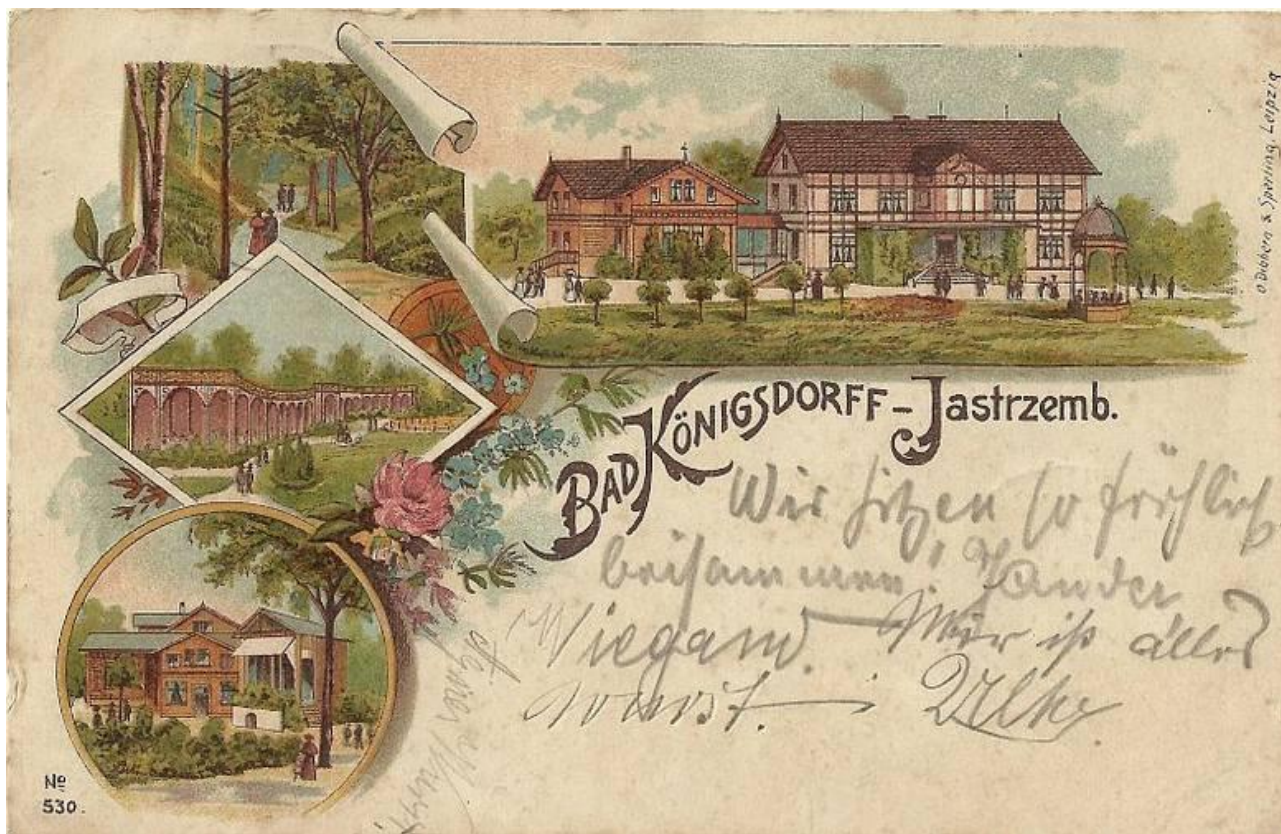 O. Dibbern & Sperling, Leipzig
BAD KÖNIGSDORFF - Jastrzemb.
Wir sitzen so fröhlich
beisammen.
Wiegand. Mir ist alles
wurst.
No
530.